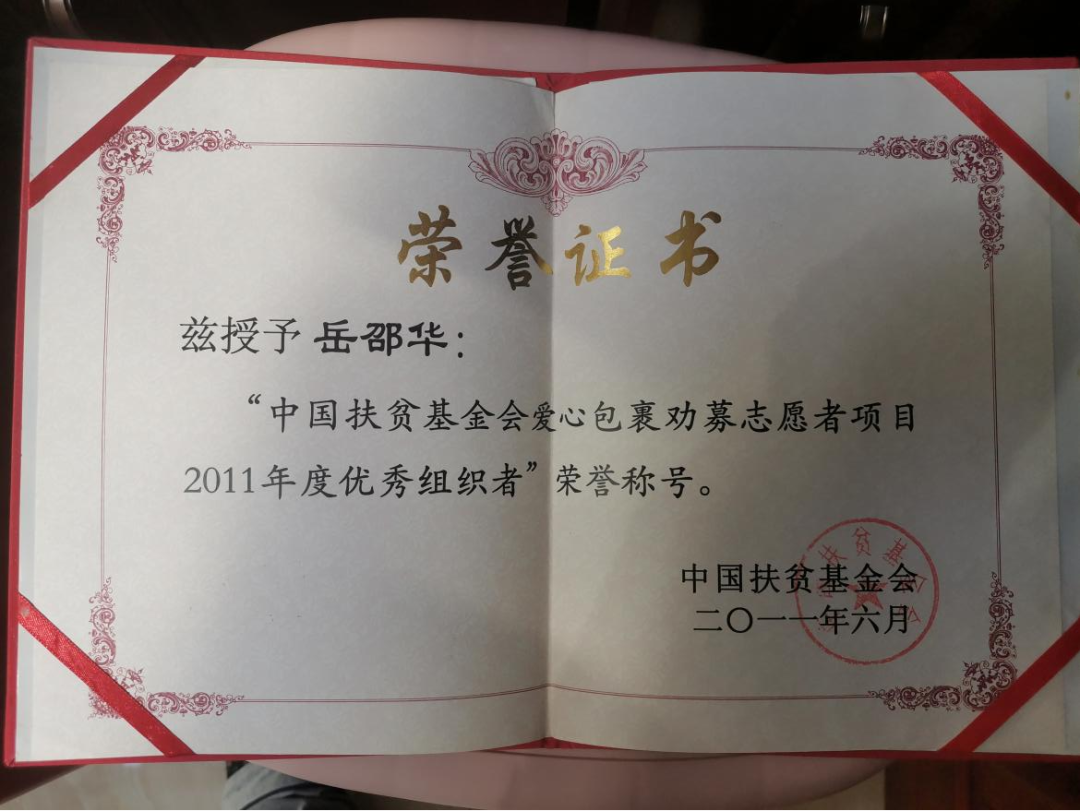 荣誉证书
兹授予 岳邵华：
“中国扶贫基金会爱心包裹劝募志愿者项目
2011年度优秀组织者”荣誉称号。
中国扶贫基金会
二〇一一年六月